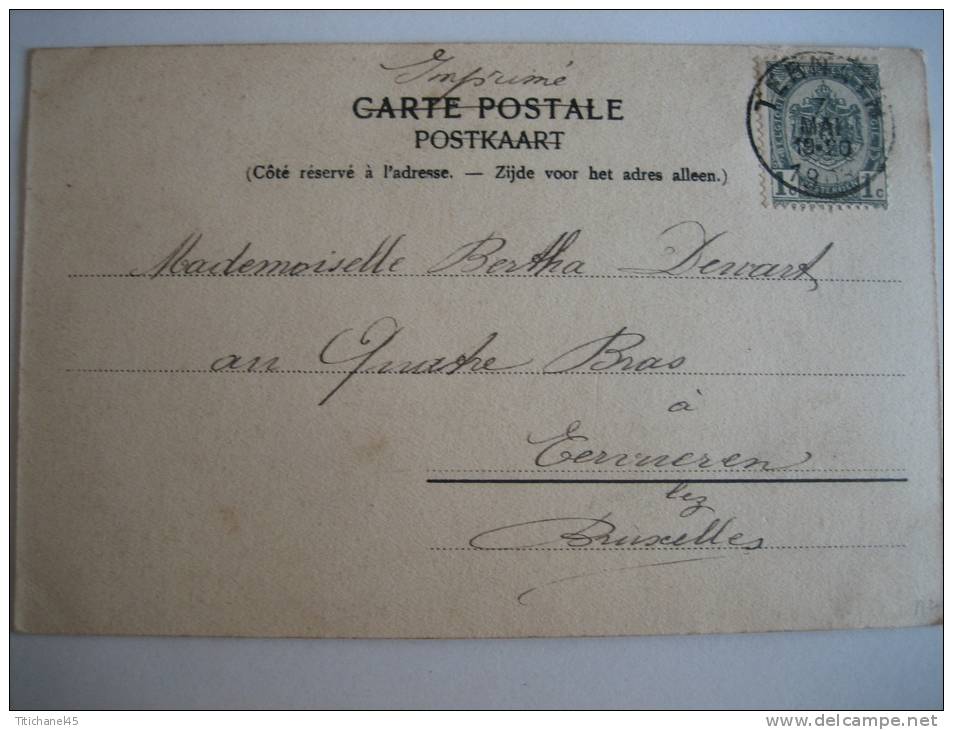 Imprimé
CARTE POSTALE
POSTKAART
(Côté réservé à l'adresse. — Zijde voor het adres alleen.)
7
MAI
19-20
1 C 1 C
Mademoiselle Bertha Dewart
au Quatre Bras
à
Tervueren
lez
Bruxelles
Ttichane45
www.delcampe.net